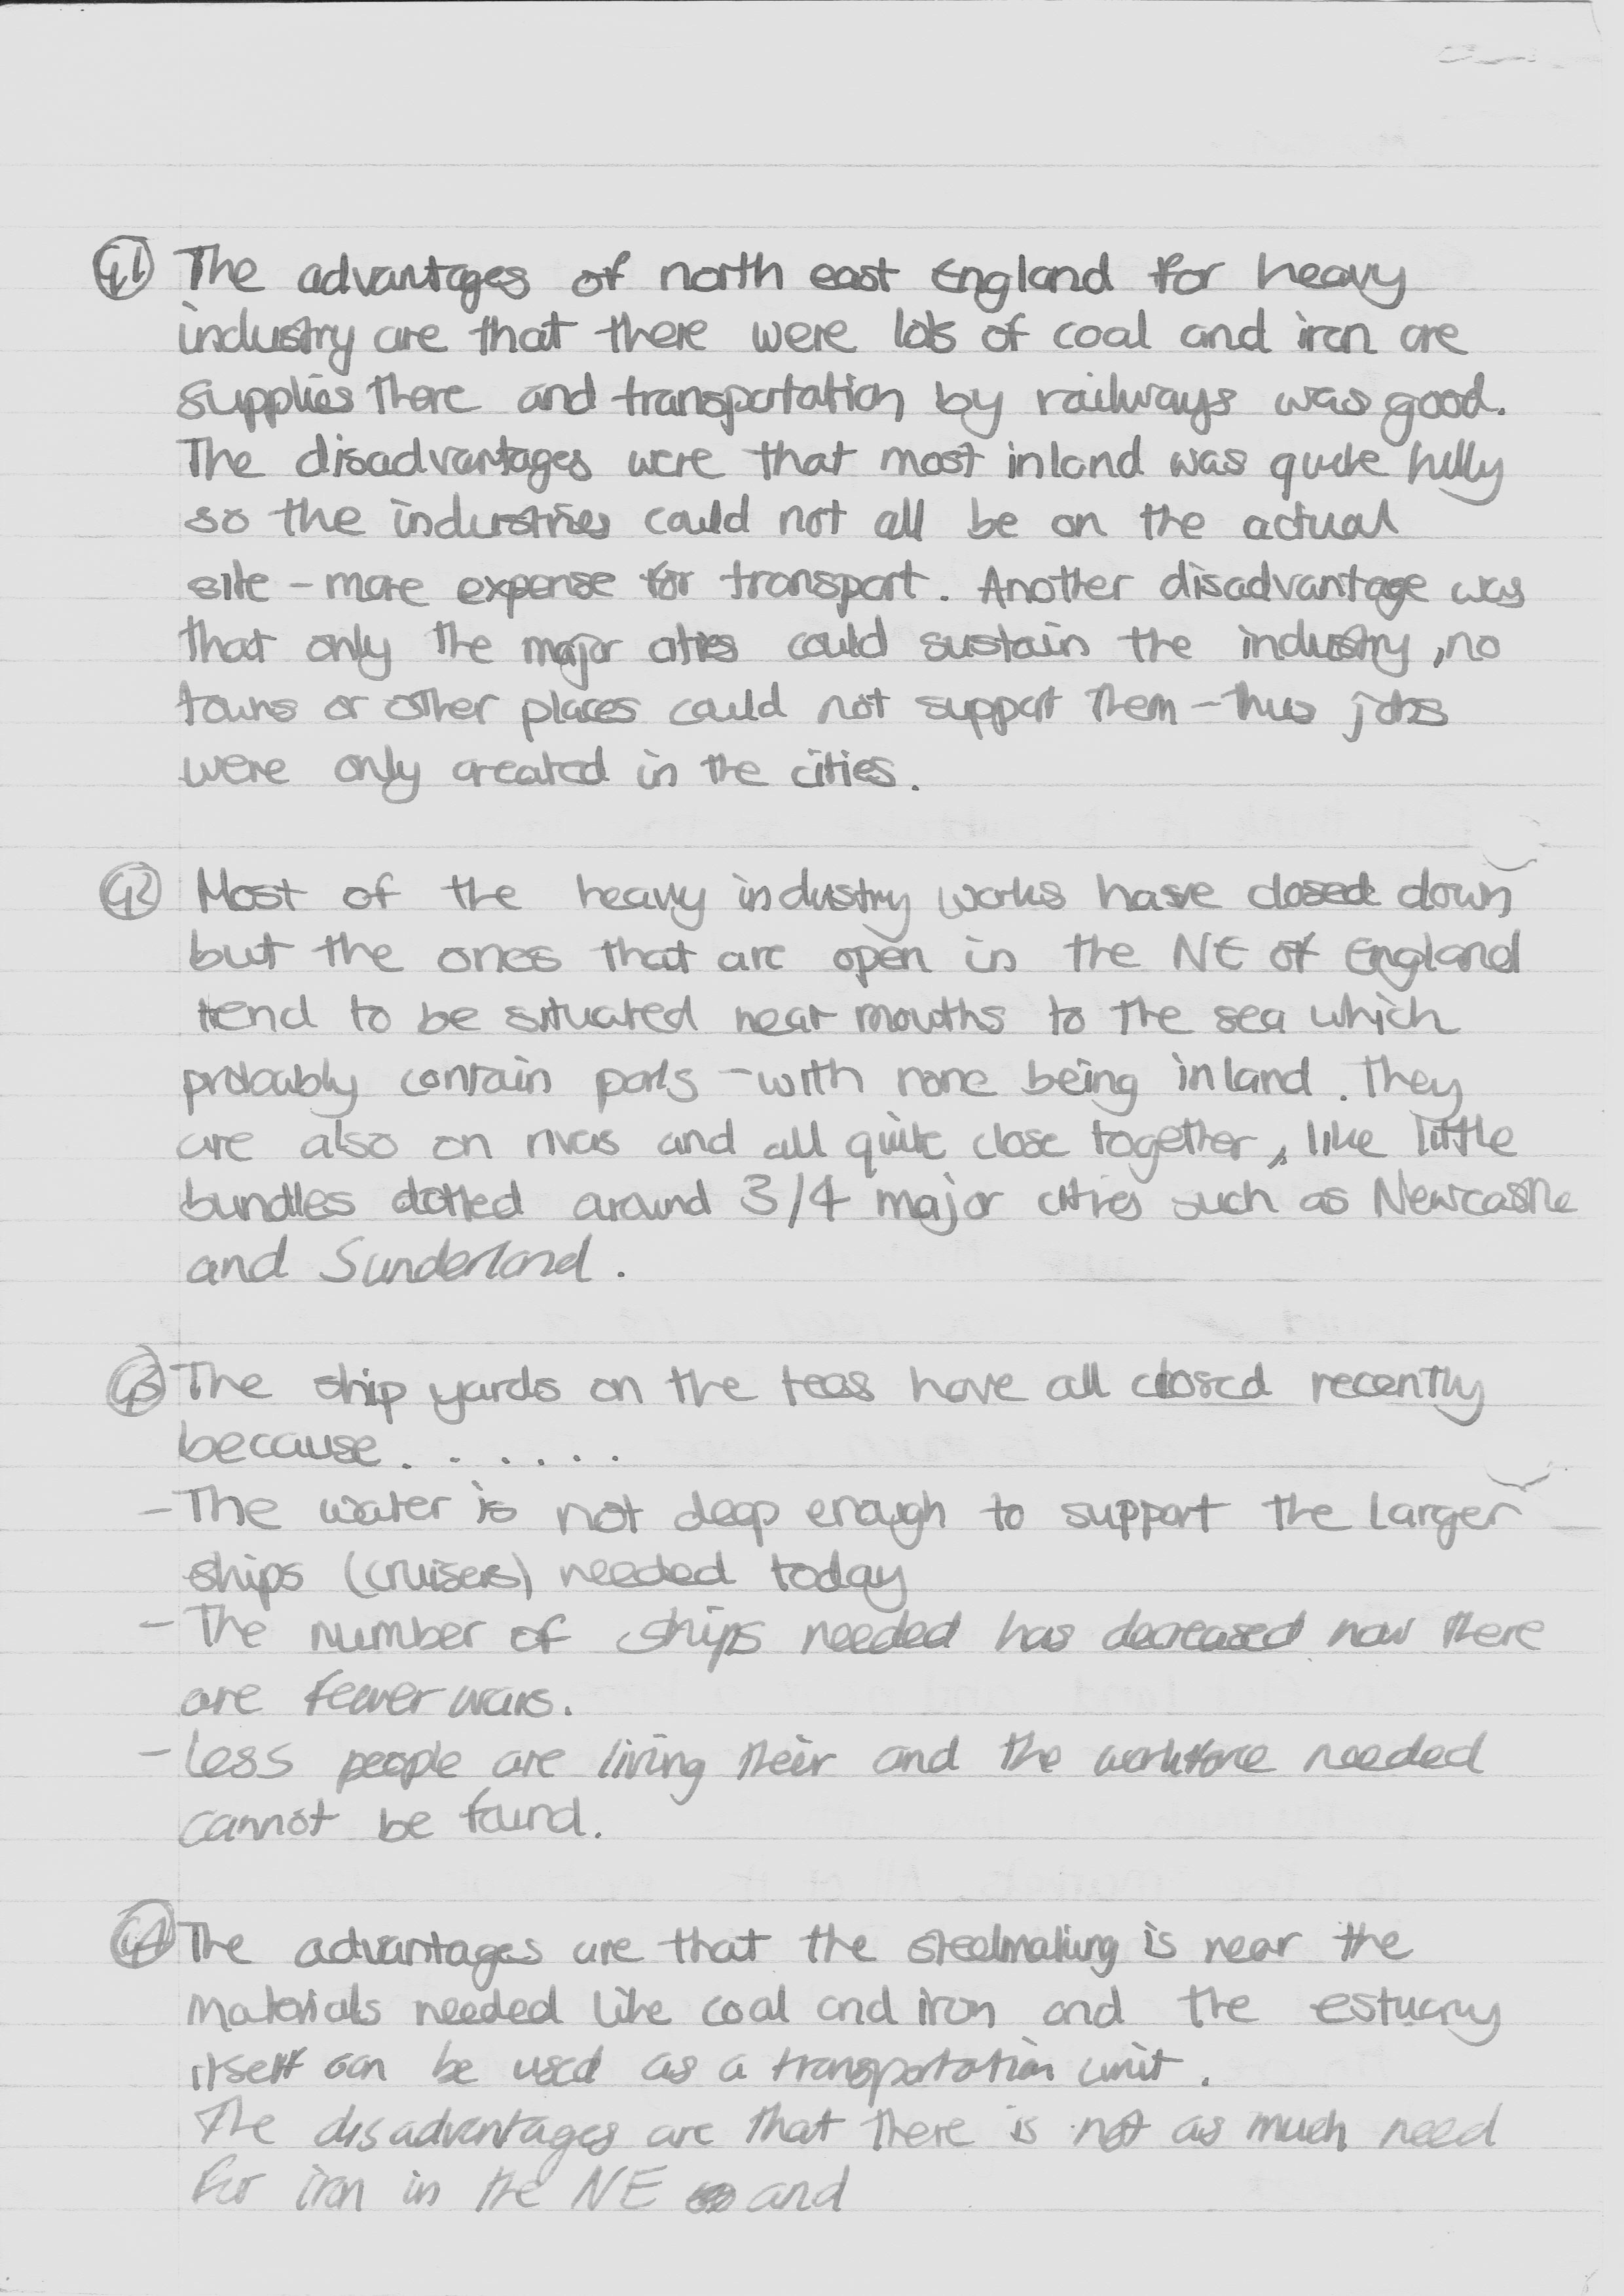 Q1 The advantages of north east England for heavy
industry are that there were lots of coal and iron ore
supplies there and transportation by railways was good.
The disadvantages were that most inland was quite hilly
so the industries could not all be on the actual
site - more expense for transport. Another disadvantage was
that only the major cities could sustain the industry, no
towns or other places could not support them - thus jobs
were only created in the cities.
Q2 Most of the heavy industry works have closed down
but the ones that are open in the NE of England
tend to be situated near mouths to the sea which
probably contain ports - with none being inland. They
are also on rivers and all quite close together, like little
bundles dotted around 3/4 major cities such as Newcastle
and Sunderland.
Q3 The ship yards on the tees have all closed recently
because.......
- The water is not deep enough to support the larger
ships (cruisers) needed today
- The number of ships needed has decreased now there
are fewer wars.
- Less people are living their and the workforce needed
cannot be found.
Q4 The advantages are that the steelmaking is near the
materials needed like coal and iron and the estuary
itself can be used as a transportation unit.
The disadvantages are that there is not as much need
for iron in the NE and